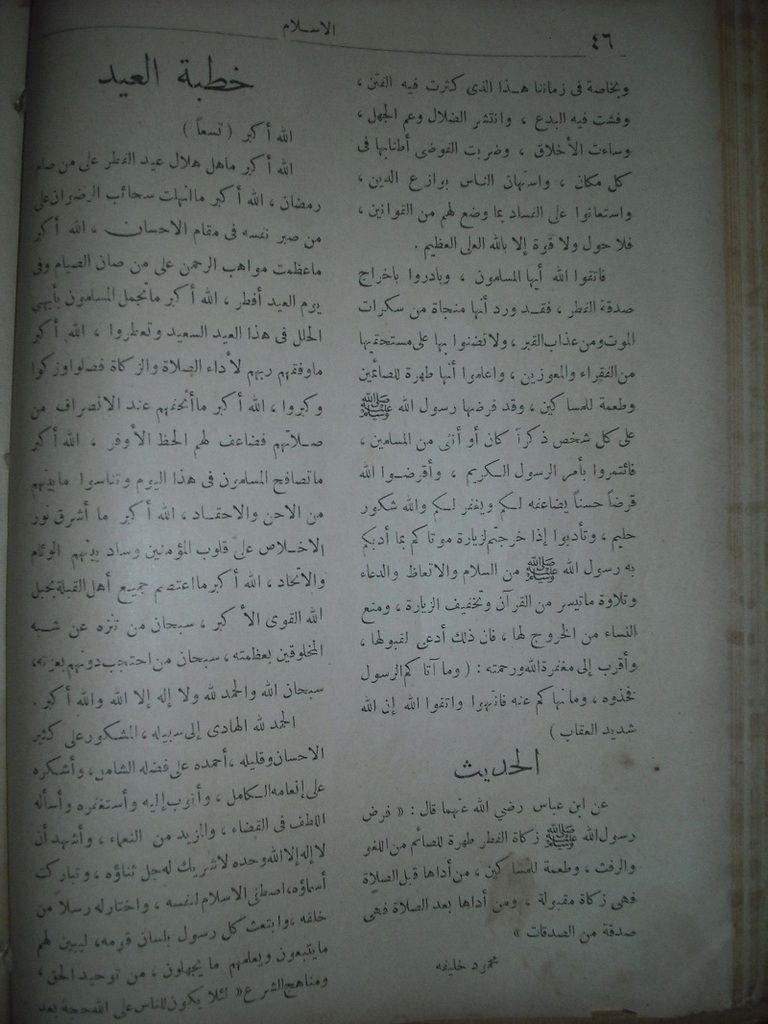 ٤٦
الاسلام
وبخاصة فى زماننا هذا الذى كثرت فيه الفتن ،
وفشت فيه البدع ، وانتشر الضلال وعم الجهل ،
وساءت الأخلاق ، وضربت الفوضى أطنابها فى
كل مكان ، واستهان الناس بوازع الدين ،
واستعانوا على الفساد بما وضع لهم من القوانين ،
فلا حول ولا قوة إلا بالله العلى العظيم .
فاتقوا الله أيها المسلمون ، وبادروا باخراج
صدقة الفطر ، فقد ورد أنها منجاة من سكرات
الموت ومن عذاب القبر ، ولا تضنوا بها على مستحقيها
من الفقراء والمعوزين ، واعلموا أنها طهرة للصائمين
وطعمة للمساكين ، وقد فرضها رسول الله ﷺ
على كل شخص ذكراً كان أو أنثى من المسلمين ،
فائتمروا بأمر الرسول الكريم ، وأقرضوا الله
قرضاً حسناً يضاعفه لكم ويغفر لكم والله شكور
حليم ، وتأدبوا إذا خرجتم لزيارة موتاكم بما أدبكم
به رسول الله ﷺ من السلام والاتعاظ والدعاء
وتلاوة ماتيسر من القرآن وتخفيف الزيارة ، ومنع
النساء من الخروج لها ، فان ذلك أدعى لقبولها ،
وأقرب إلى مغفرة الله ورحمته : ( وما آتاكم الرسول
فخذوه ، وما نهاكم عنه فانتهوا واتقوا الله إن الله
شديد العقاب )
الحديث
عن ابن عباس رضي الله عنهما قال : « فرض
رسول الله ﷺ زكاة الفطر طهرة للصائم من اللغو
والرفث ، وطعمة للمساكين ، من أداها قبل الصلاة
فهى زكاة مقبولة ، ومن أداها بعد الصلاة فهى
صدقة من الصدقات »
محمود خليفه
خطبة العيد
الله أكبر ( تسعاً )
الله أكبر ماهل هلال عيد الفطر على من صام
رمضان ، الله أكبر ماانهلت سحائب الرضوان على
من صبر نفسه فى مقام الاحسان ، الله أكبر
ماعظمت مواهب الرحمن على من صان الصيام وفى
يوم العيد أفطر ، الله أكبر ماتجمل المسلمون بأبهى
الحلل فى هذا العيد السعيد وتعطروا ، الله أكبر
ماوفقهم ربهم لأداء الصلاة والزكاة فصلوا وزكوا
وكبروا ، الله أكبر ماأتحفهم عند الانصراف من
صلاتهم فضاعف لهم الحظ الأوفر ، الله أكبر
ماتصافح المسلمون فى هذا اليوم وتناسوا مابينهم
من الاحن والاحقاد ، الله أكبر ما أشرق نور
الاخلاص على قلوب المؤمنين وساد بينهم الوئام
والاتحاد ، الله أكبر مااعتصم جميع أهل القبلة بحبل
الله القوى الأكبر ، سبحان من تنزه عن شبه
المخلوقين بعظمته ، سبحان من احتجب دونهم بعزته ،
سبحان الله والحمد لله ولا إله إلا الله والله أكبر .
الحمد لله الهادى إلى سبيله ، المشكور على كثير
الاحسان وقليله ، أحمده على فضله الشامل ، وأشكره
على إنعامه الكامل ، وأتوب إليه وأستغفره وأسأله
اللطف فى القضاء ، والمزيد من النعماء ، وأشهد أن
لاإله إلا الله وحده لاشريك له جل ثناؤه ، وتباركت
أسماؤه ، اصطفى الاسلام لنفسه ، واختار له رسلا من
خلقه ، وابتعث كل رسول بلسان قومه ، ليبين لهم
مايتبعون ويعلمهم مايجهلون ، من توحيد الحق ،
ومناهج الشرع « لئلا يكون للناس على الله حجة بعد